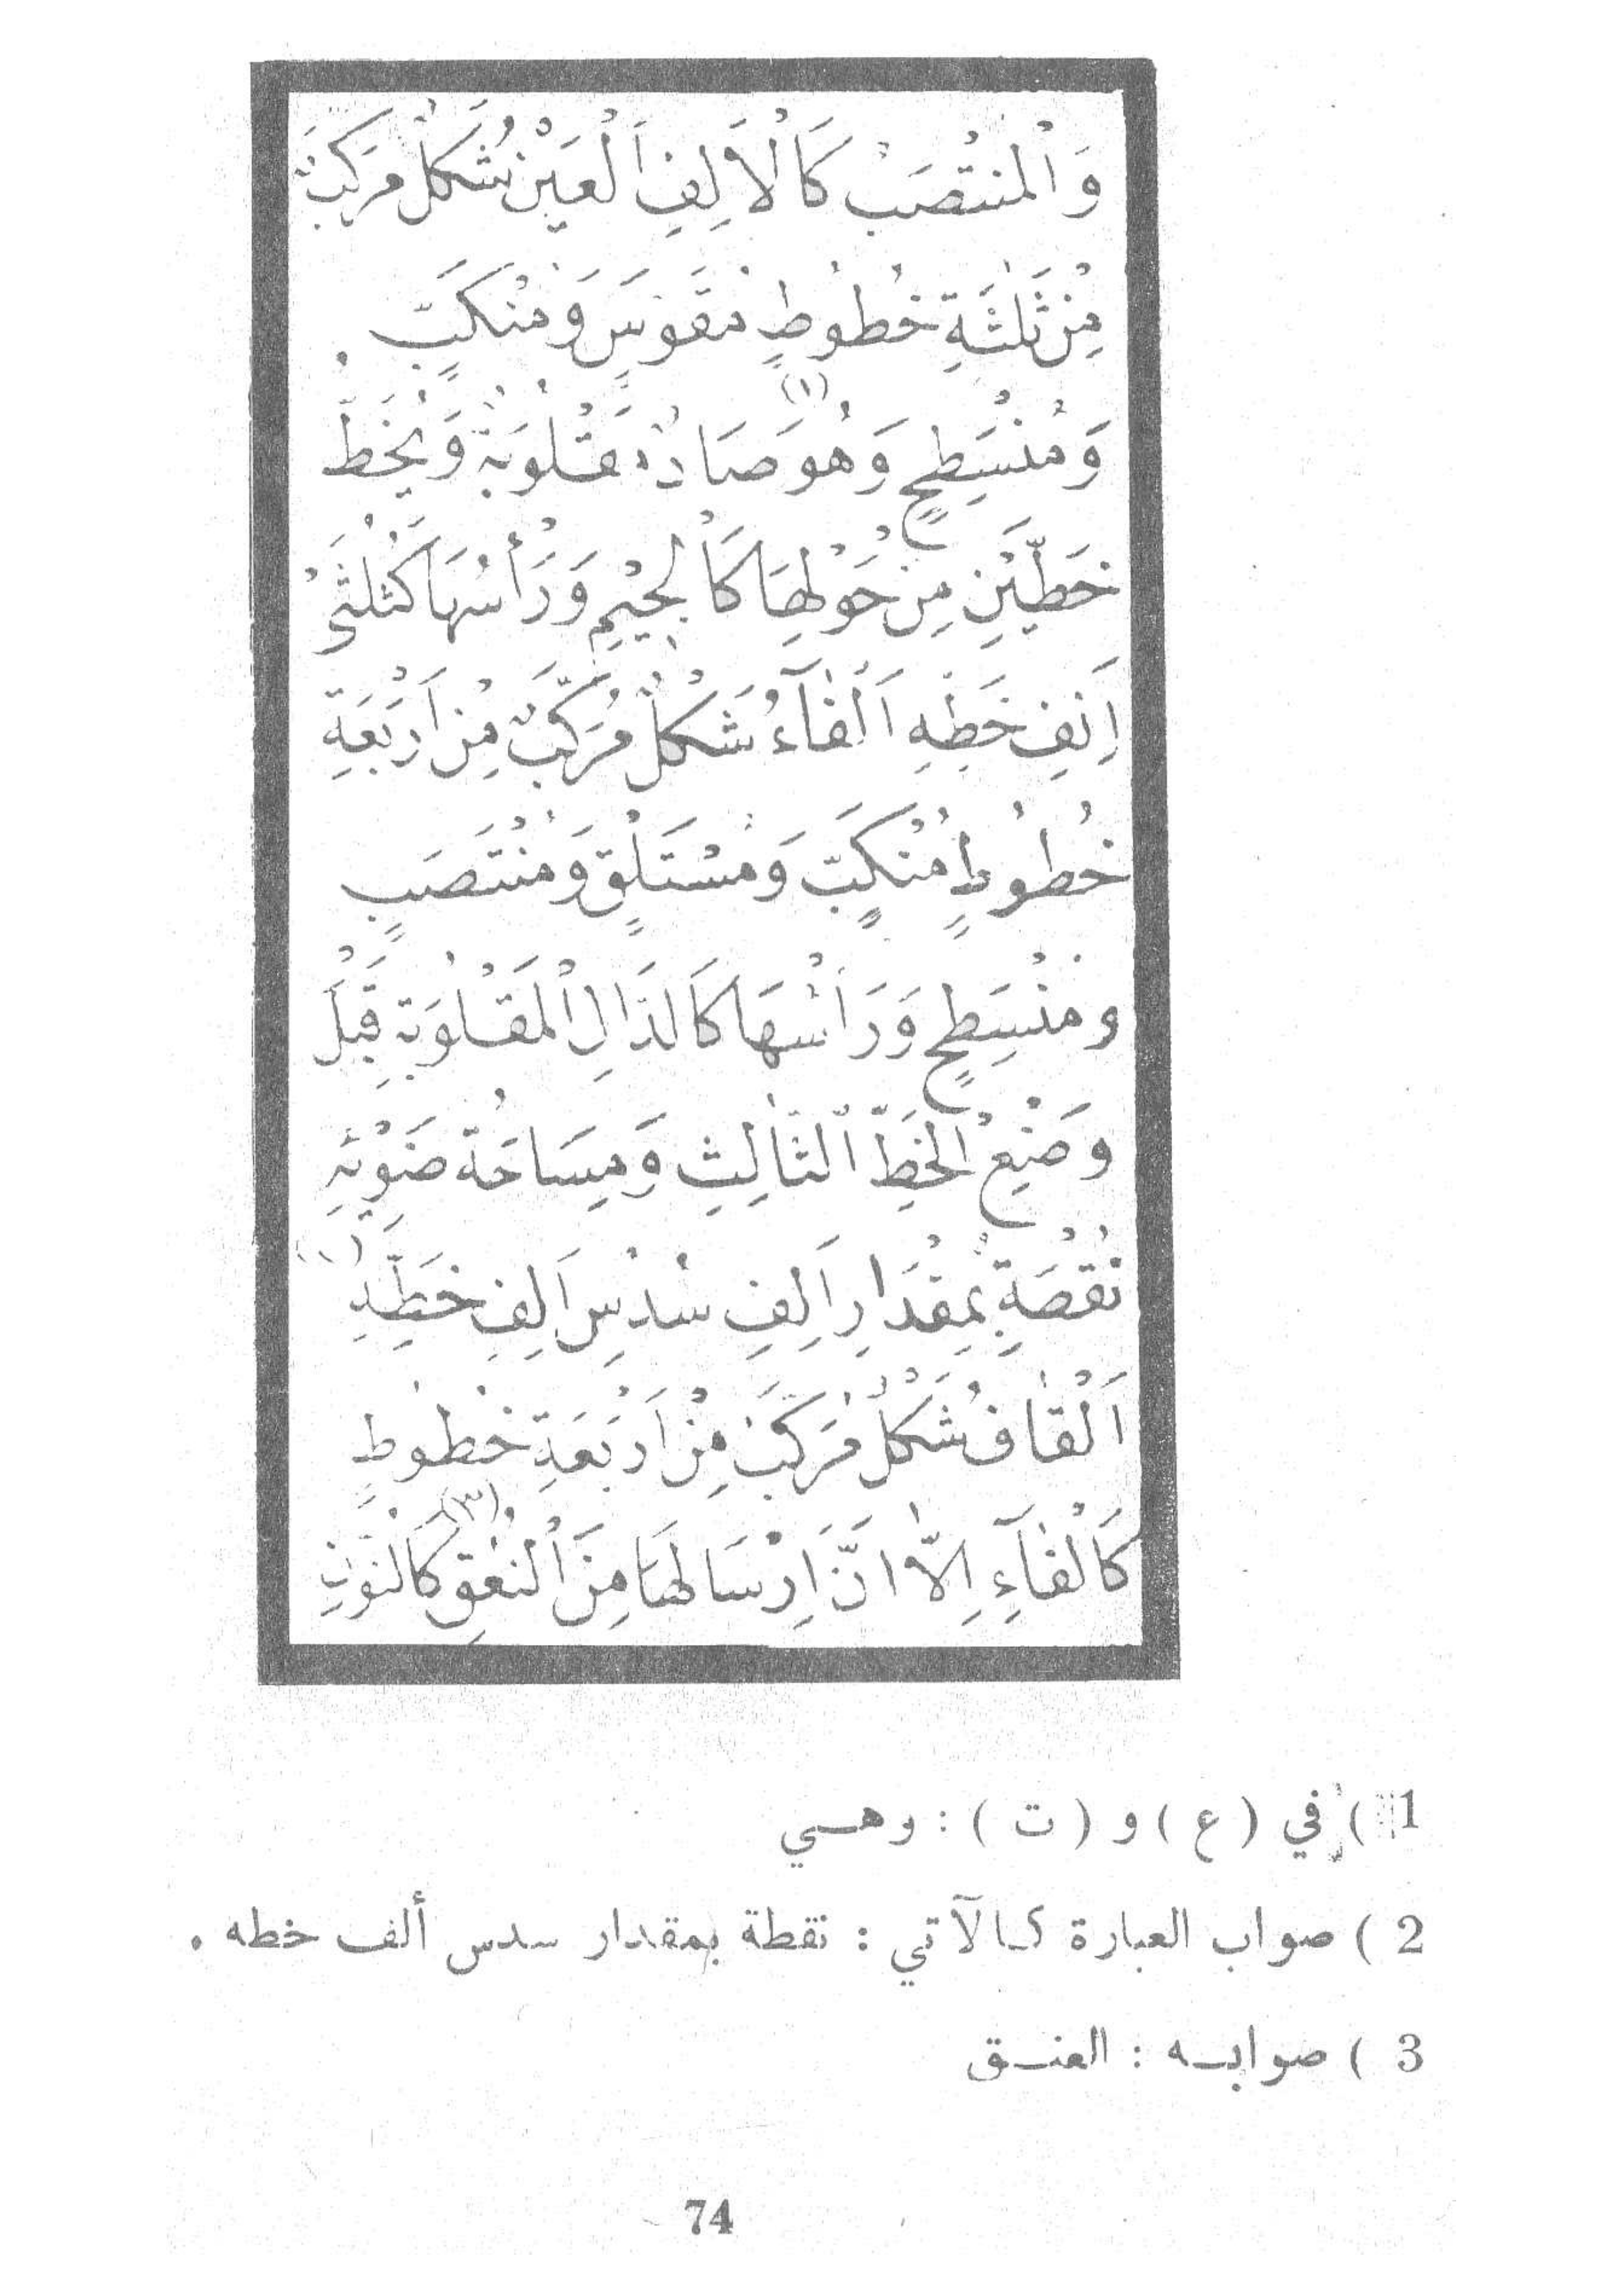 وَالْمُنْتَصَبُ كَالْاَلِفِ اَلْعَيْنُ شَكْلٌ مُرَكَّبٌ
مِنْ ثَلٰثَةِ خُطُوطٍ مُقَوَّسٍ وَمُنْكَبٍّ
وَمُنْسَطِحٍ وَهُوَ (١) صَادٌ مَقْلُوبَةٌ وَيُخَطُّ
خَطَّيْنِ مِنْ حَوْلِهَا كَالْجِيْمِ وَرَأْسُهَا كَثُلُثَىْ
اَلِفِ خَطِّهِ اَلْفَآءُ شَكْلٌ مُرَكَّبٌ مِنْ اَرْبَعَةِ
خُطُوطٍ مُنْكَبٍّ وَمُسْتَلْقٍ وَمُنْتَصَبٍ
وَمُنْسَطِحٍ وَرَاْسُهَا كَالدَّالِ الْمَقْلُوبَةِ قَبْلَ
وَضْعِ الْخَطِّ الثَّالِثِ وَمِسَاحَةُ ضَوْئِهِ
نُقْصَةٍ بِمِقْدَارِ اَلِفِ سُدْسِ اَلِفِ خَطِّهِ (٢)
اَلْقٰافُ شَكْلٌ مُرَكَّبٌ مِنْ اَرْبَعَةِ خُطُوطٍ
كَالْفَآءِ اِلاّٰ انَّ اِرْسَالَهَا مِنَ النُّعُقِ (٣) كَالنُّونِ
1 ) في ( ع ) و ( ت ) : وهـي
2 ) صواب العبارة كـالآتي : نقطة بمقدار سدس ألف خطه .
3 ) صوابـه : العنـق
74